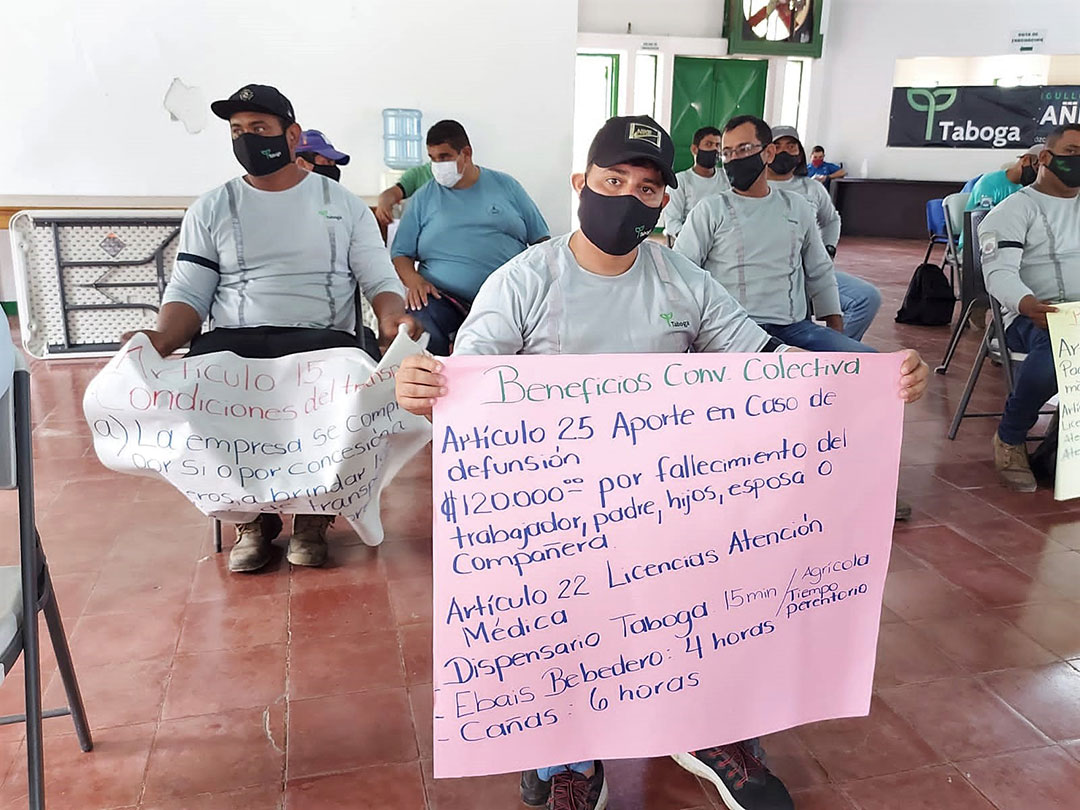 Taboga
AÑ
Taboga
Taboga
Artículo 15
Condiciones del
a) La empresa se
por si o por concesión a
a brindar
de
Beneficios Conv. Colectiva
Artículo 25 Aporte en Caso de
defunsión
₡120.000⁰⁰ por fallecimiento del
trabajador, padre, hijos, esposa o
Compañera
Artículo 22 Licencias Atención
Médica
Dispensario Taboga 15min / Agrícola
Tiempo
perentorio
- Ebais Bebedero: 4 horas
- Cañas: 6 horas